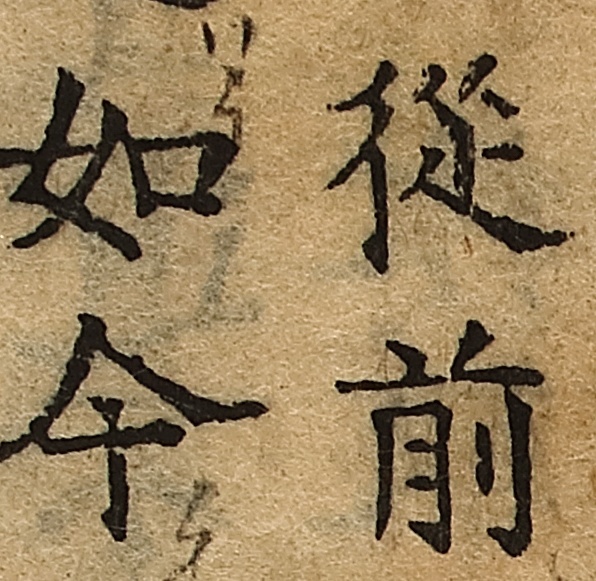 從前
如今